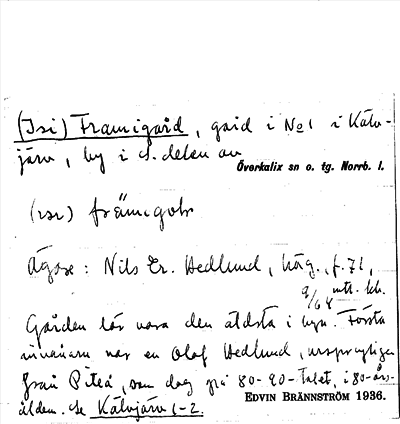 (Isi) Framigård, gård i No1 i Kälv-
järv, by i s. delen av
Överkalix sn o. tg. Norrb. l.
(ɪsɪ)
Ägare: Nils Er. Hedlund, f. 71,
9/64
Gården lär vara den äldsta i byn. Första
invånaren var en Olof Hedlund, ursprungligen
från Piteå, som dog på 80-90-talet, i 80-års-
ålden. Se Kälvjärv 1-2.
EDVIN BRÄNNSTRÖM 1936.